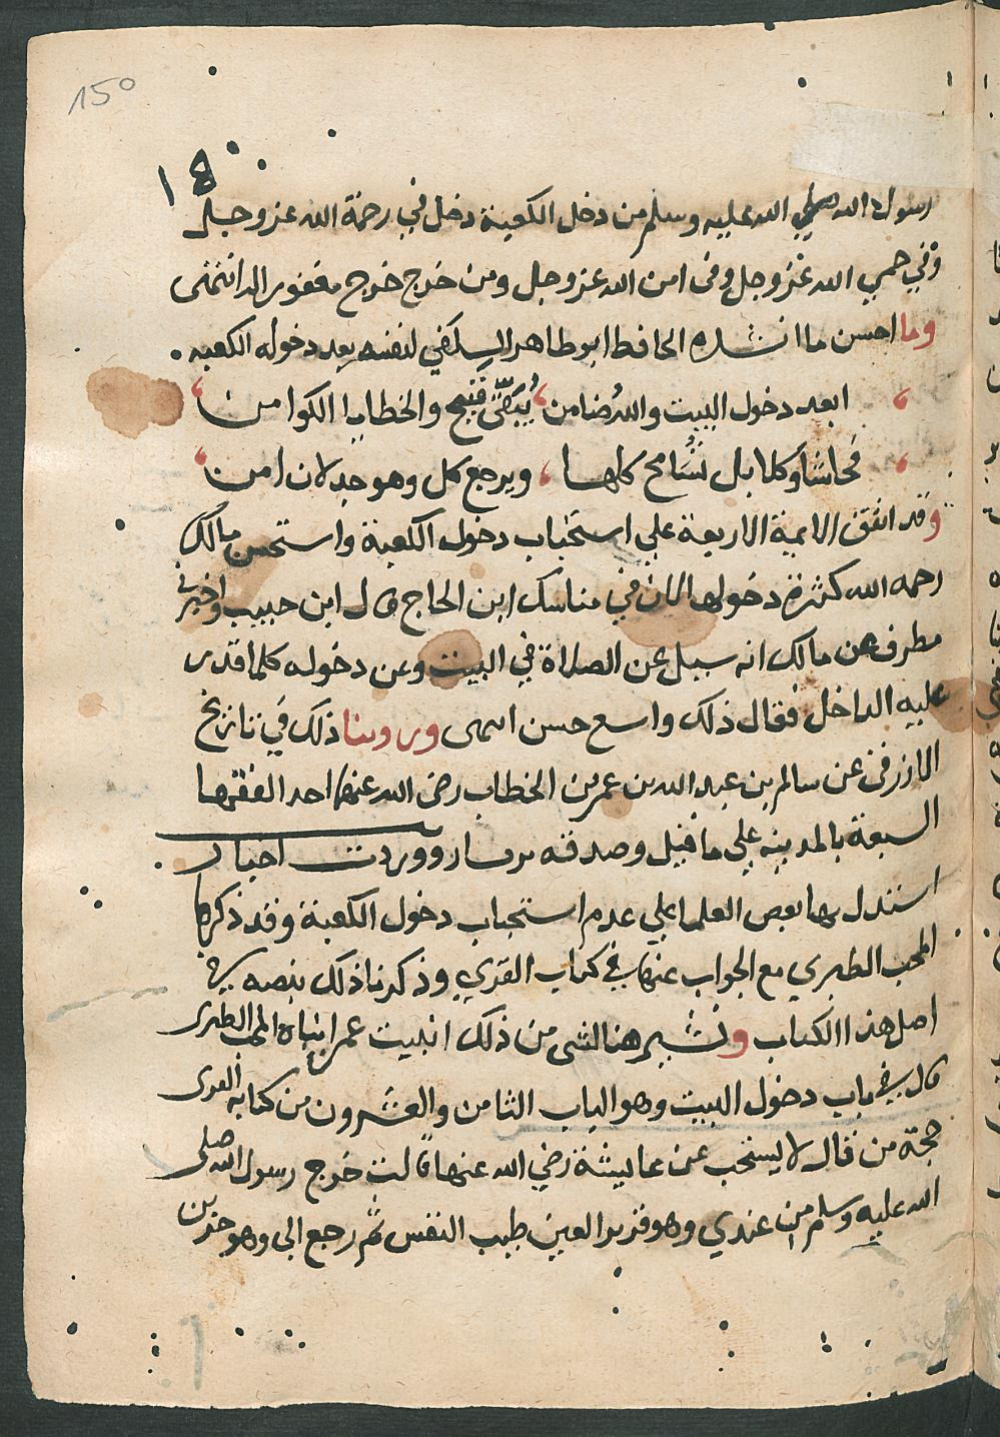 150
رسول الله صلى الله عليه وسلم من دخل الكعبة دخل في رحمة الله عز وجل
وفي حمي الله عز وجل وفى امن الله عز وجل ومن خرج خرج مغفور الد انتهى
وما احسن ما انشده الحافظ ابو طاهر السلفي لنفسه بعد دخوله الكعبه
ابعد دخول البيت والله ضامن يبقى قبيح والخطايا الكوامن
فحاشا وكلا بل تسامح كلها ويرجع كل وهو جدلان امن
وقد اتفق الايمة الاربعة علي استحباب دخول الكعبة واستحسن مالك
رحمه الله كثرة دخولها لان في مناسك ابن الحاج قال ابن حبيب واخبرني
مطرف عن مالك انه سيل عن الصلاة في البيت وعن دخوله كلما قدر
عليه الداخل فقال ذلك واسع حسن انتهى وروينا ذلك في تاريخ
الازرقي عن سالم بن عبد الله بن عمر بن الخطاب رضى الله عنهما احد الفقها
السبعة بالمدينه علي ما قيل وصدقه بن يسار ووردت اخبار
استدل بها بعض العلما علي عدم استحباب دخول الكعبة وقد ذكرها
المحب الطبري مع الجواب عنها في كتاب القري وذكرنا ذلك بنصه في
اصل هذا الكتاب ونشير هنا لشي من ذلك المحب الطبرى
قال في باب دخول البيت وهو الباب الثامن والعشرون من كتابه القرى
حجة من قال لا يستحب عن عايشة رضي الله عنها قالت خرج رسول الله صلى
الله عليه وسلم من عندي وهو قرير العين طيب النفس ثم رجع الى وهو حزين